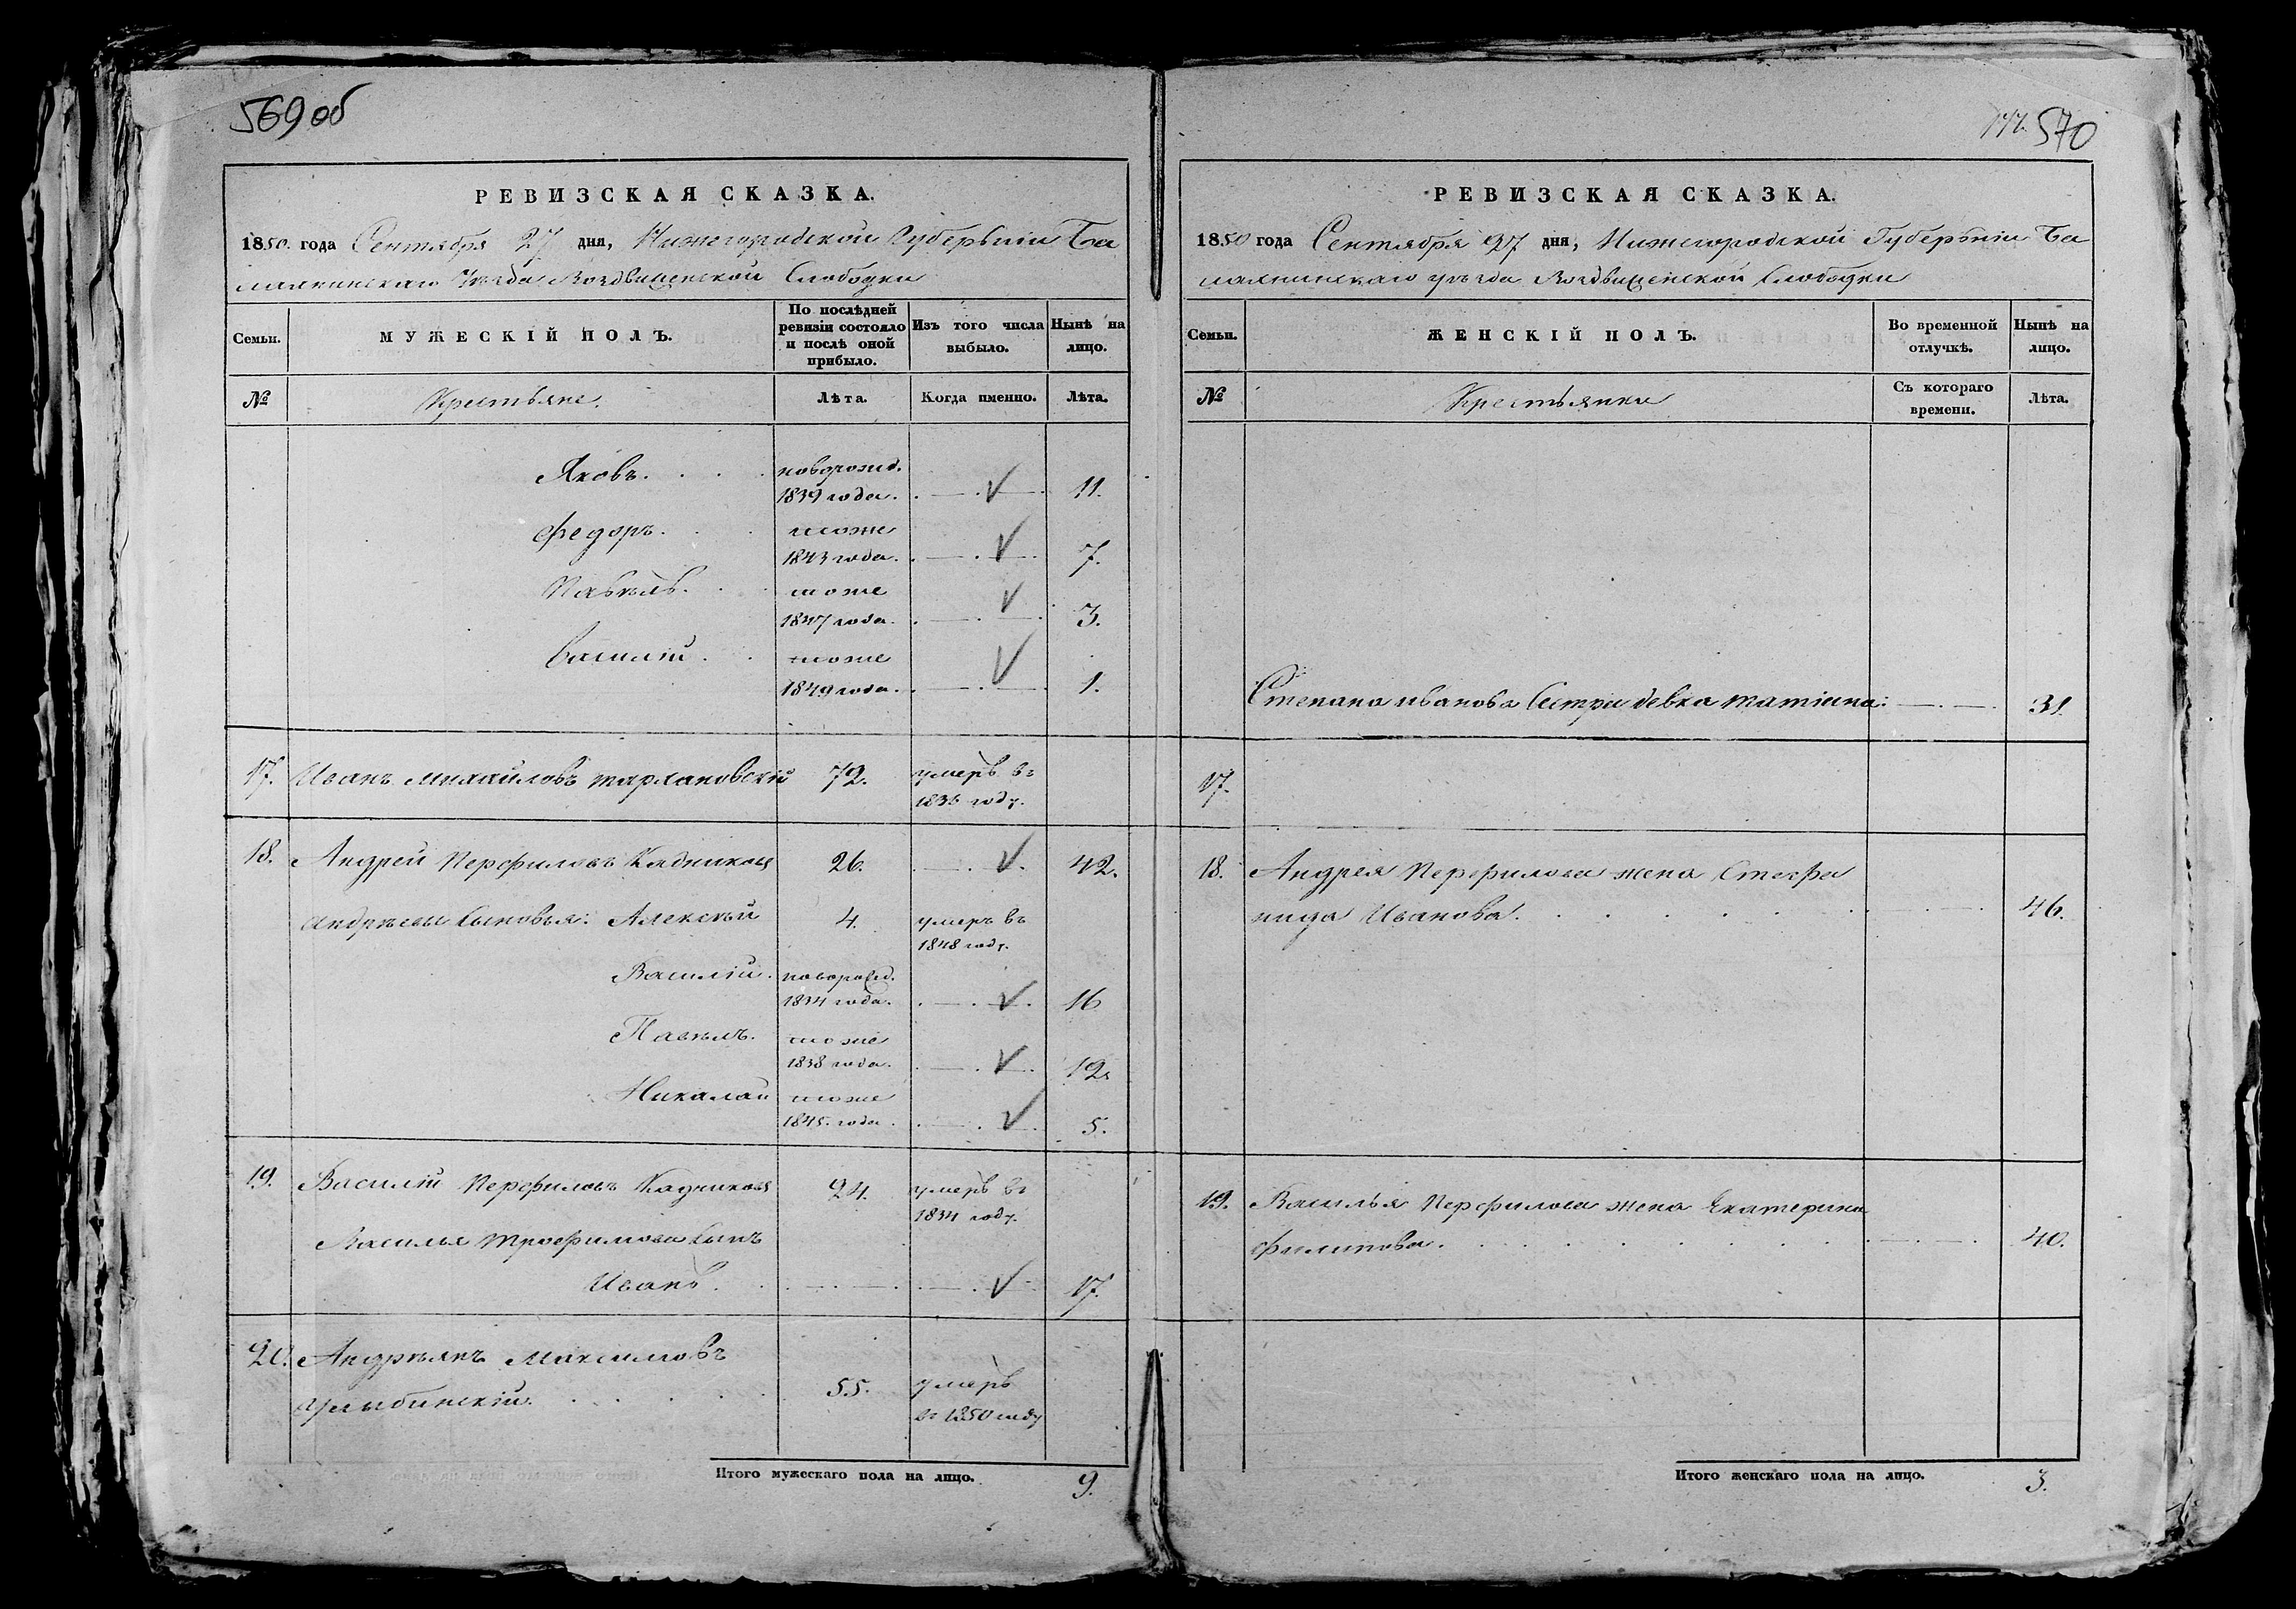 569 об
РЕВИЗСКАЯ СКАЗКА.
1850. года Сентября 27 дня, Нижегородской Губерніи Ба
лахнинскаго Уѣзда Воздвиженской Слободки
Семьи.
МУЖЕСКІЙ ПОЛЪ.
По послѣдней ревизіи состояло и послѣ оной прибыло.
Изъ того числа выбыло.
Нынѣ на лицо.
№
Крестьяне.
Лѣта.
Когда именно.
Лѣта.
Яковъ. новорожд.
1839 года. 11.
Федоръ. тоже
1843 года. 7.
Павелъ. тоже
1847 года. 3.
Василій. тоже
1849 года. 1.
17. Иванъ Михайловъ 72. умеръ въ
183 году.
18. Андрей Перфиловъ Кадниковъ 26. 42.
Андреевы сыновья: Алексѣй 4. умеръ въ
1848 году.
Василій. новорожд.
1834 года. 16
Павелъ. тоже
1838 года. 12.
Николай тоже
1845. года. 5.
19. Василій Перфиловъ Кадниковъ 24. умеръ въ
1834 году.
Василья Трофимова сынъ
Иванъ. 17.
20. Андреянъ Максимовъ
55. умеръ
въ 1850 году
Итого мужескаго пола на лицо. 9.
570
РЕВИЗСКАЯ СКАЗКА.
1850 года Сентября 27 дня, Нижегородской Губерніи Ба
лахнинскаго уѣзда Воздвиженской Слободки
Семьи.
ЖЕНСКІЙ ПОЛЪ.
Во временной отлучкѣ.
Нынѣ на лицо.
№
Крестьянки
Съ котораго времени.
Лѣта.
Степана Иванова Сестра девка Татіяна: 31.
17.
18. Андрея Перфилова жена Степа
нида Иванова. 46.
19. Василья Перфилова жена Екатерина
Филипова. 40.
Итого женскаго пола на лицо. 3.